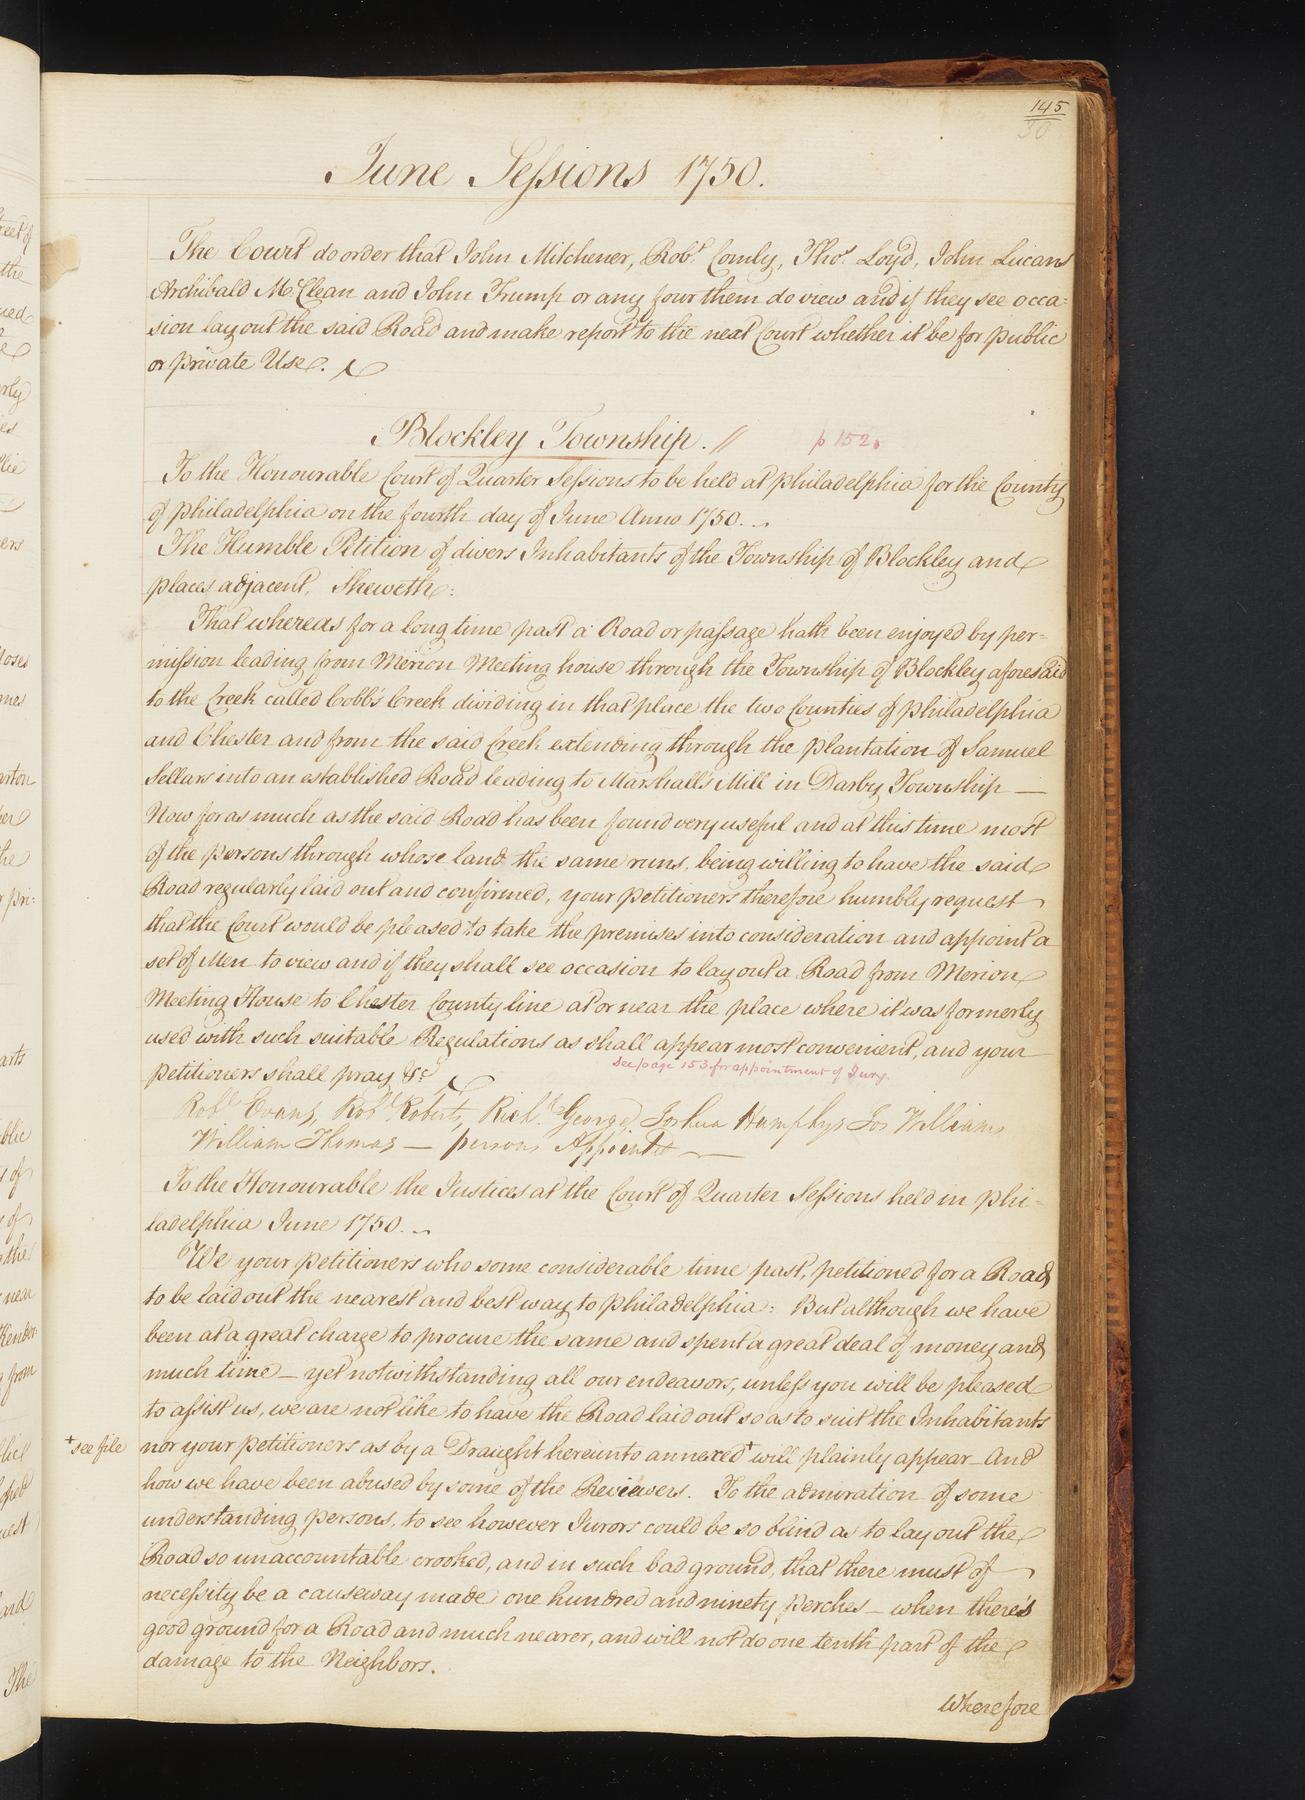 145
30
June Sessions 1750.
The Court do order that John Mitchener, Robt. Comly, Thos. Loyd, John Lucans
Archibald McClean and John Trump or any four them do view and if they see occa=
sion lay out the said Road and make report to the next Court whether it be for public
or private Use.
Blockley Township. //
p 152.
To the Honourable Court of Quarter Sessions to be held at Philadelphia for the County
of Philadelphia on the fourth day of June Anno 1750.
The Humble Petition of divers Inhabitants of the Township of Blockley and
places adjacent, Sheweth:
That whereas for a long time past a Road or passage hath been enjoyed by per=
mission leading from Merion Meeting house through the Township of Blockley aforesaid
to the Creek called Cobb's Creek dividing in that place the two Counties of Philadelphia
and Chester and from the said Creek extending through the plantation of Samuel
Sellars into an established Road leading to Marshall's Mill in Darby Township —
Now for as much as the said Road has been found very useful and at this time most
of the persons through whose land the same runs, being willing to have the said
Road regularly laid out and confirmed, your petitioners therefore humbly request
that the Court would be pleased to take the premises into consideration and appoint a
set of Men to view and if they shall see occasion to lay out a Road from Merion
Meeting House to Chester County line at or near the place where it was formerly
used with such suitable Regulations as shall appear most convenient, and your
petitioners shall pray &c
see page 153 for appointment of Jury.
Robt Evans, Robt Roberts, Richd. George, Joshua Humphys Jos Williams
William Thomas — persons Appointed —
To the Honourable the Justices at the Court of Quarter Sessions held in Phi-
ladelphia June 1750.
We your petitioners who some considerable time past, petitioned for a Road
to be laid out the nearest and best way to Philadelphia: But although we have
been at a great charge to procure the same and spent a great deal of money and
much time — yet notwithstanding all our endeavors, unless you will be pleased
to assist us, we are not like to have the Road laid out so as to suit the Inhabitants
+see file
nor your petitioners as by a Draught hereunto annexed+ will plainly appear_ And
how we have been abused by some of the Reviewers. To the admiration of some
understanding persons, to see however Jurors could be so blind as to lay out the
Road so unaccountable crooked, and in such bad ground, that there must of
necessity be a causeway made one hundred and ninety perches — when there's
good ground for a Road and much nearer, and will not do one tenth part of the
damage to the Neighbors.
Wherefore